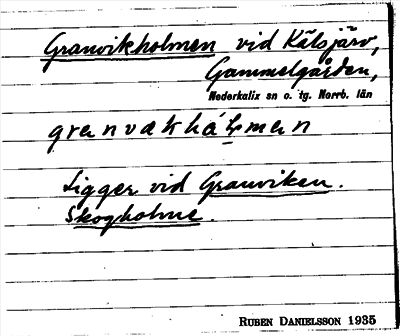 Granvikholmen vid Kälsjärv,
Gammelgården,
Nederkalix sn o. tg. Norrb. län
granvækhåļmen
Ligger vid Granviken.
Skogholme.
RUBEN DANIELSSON 1935